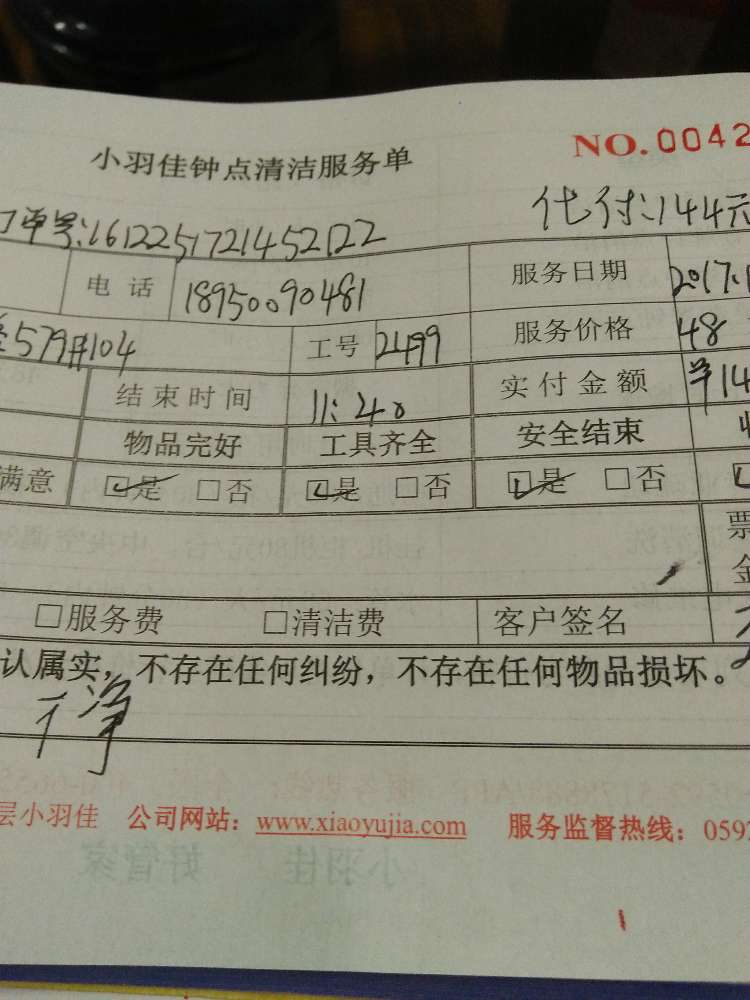 NO.0042
小羽佳钟点清洁服务单
订单号:1612251721452122 代付:144元
电话 18950090481 服务日期 2017.1
579#104 工号 2499 服务价格 48
结束时间 11:40 实付金额 ¥14
物品完好 工具齐全 安全结束
满意 ☑是 □否 ☑是 □否 ☑是 □否
票
金
□服务费 □清洁费 客户签名
认属实，不存在任何纠纷，不存在任何物品损坏。
干净
层小羽佳 公司网站：www.xiaoyujia.com 服务监督热线：0592